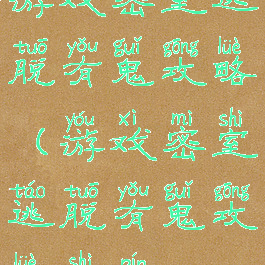 游戏密室逃
tuō yǒu guǐ gōng lüè
脱有鬼攻略
yóu xì mì shì
(游戏密室
táo tuō yǒu guǐ gōng
逃脱有鬼攻
lüè shì pín